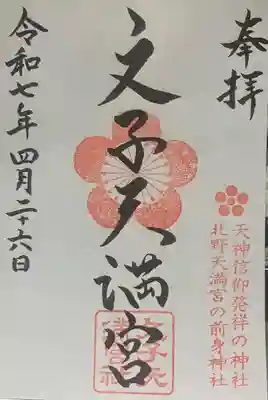 奉拝
天神信仰発祥の神社
北野天満宮の前身神社
文子天満宮
令和七年四月二十六日